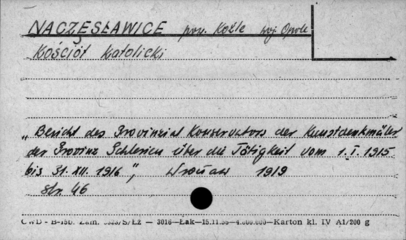 NACZĘSŁAWICE pow. Koźle woj. Opole
Kościół katolicki
„Bericht des Provinzial Konservators der Kunstdenkmäler
der Provinz Schlesien über die Tätigkeit vom 1.I.1915
bis 31.XII.1916", Wrocław 1919
str. 46
Zam. — Łak — Karton kl. IV A1/200 g